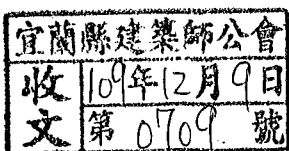 宜蘭縣建築師公會
收文
109年12月9日
第0709號